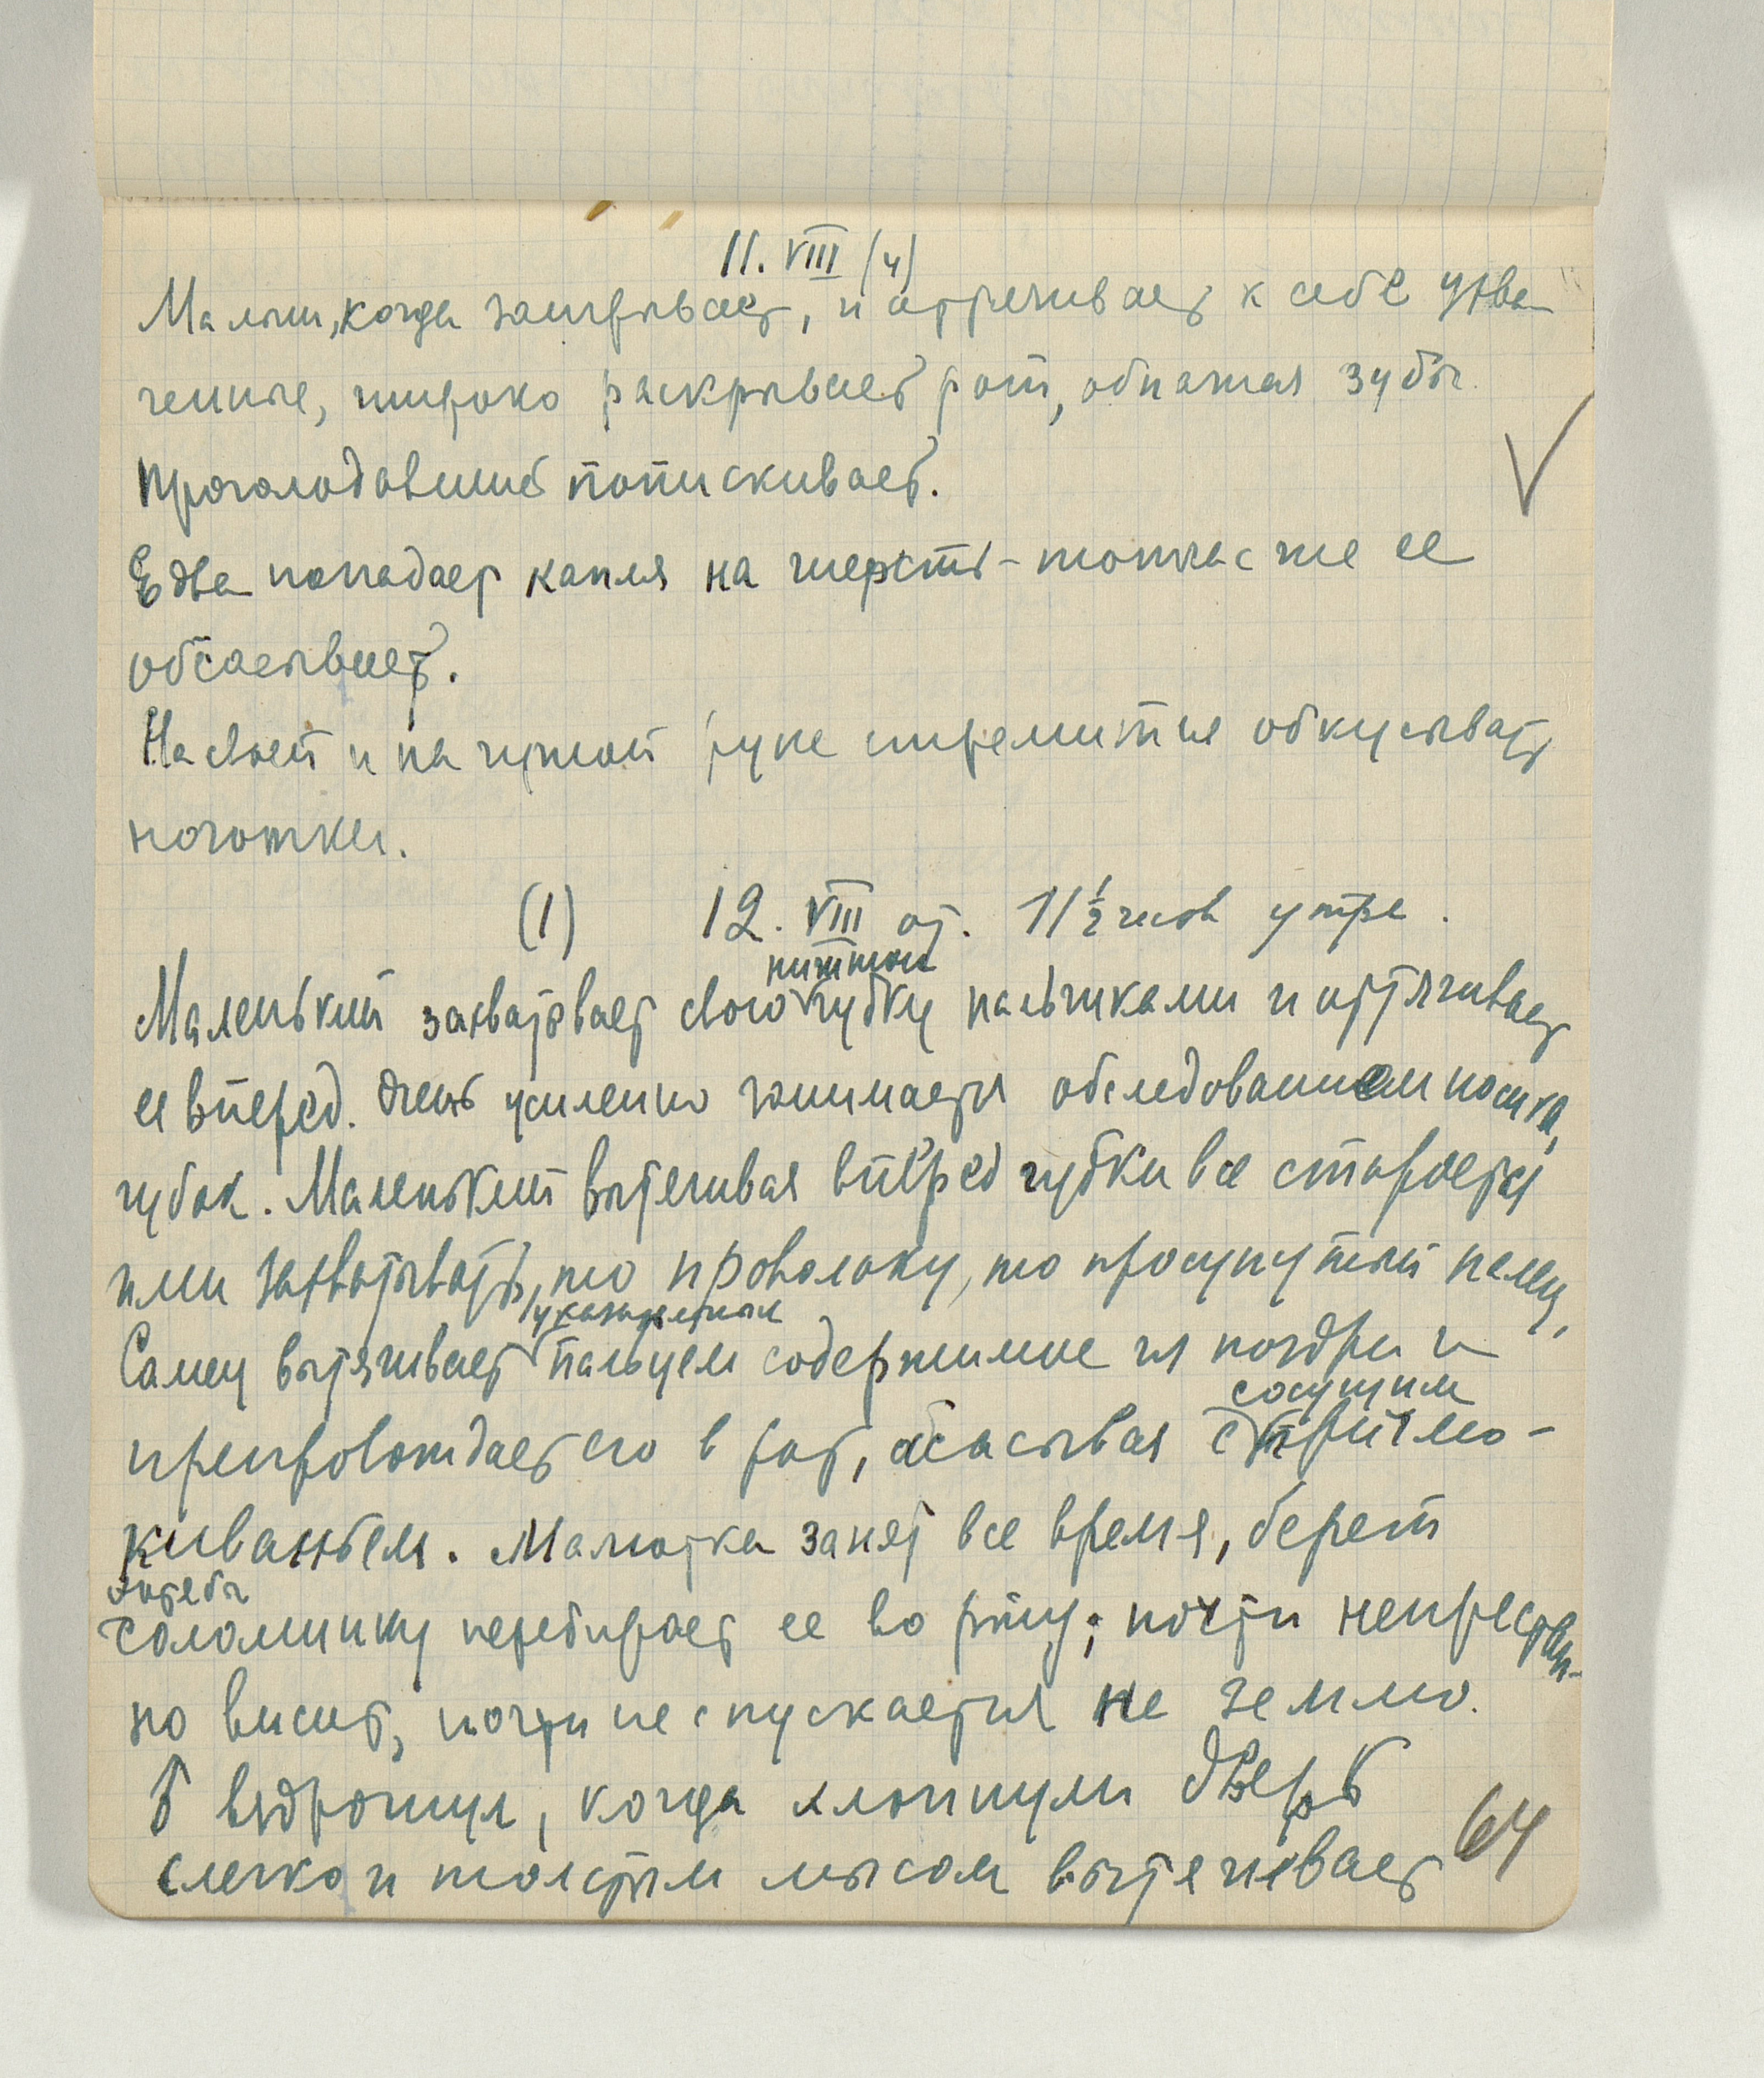 11. VIII (4)
Малыш, когда заигрывает, и оттягивает к себе
широко раскрывает рот, обнажая зубы.
Проголодавшись попискивает.
Едва попадает капля на шерсть - тотчас же ее
обсасывает.
На своей и на чужой руке стремится обкусывать
ноготки.
(1) 12. VIII от. 11 1/2 часов утра.
нижнюю
Маленький захватывает свою губку пальчиками и оттягивает
ее вперед. Очень усиленно занимается обследованием носика,
губок. Маленький вытягивая вперед губки все старается
ими захватывать, то проволоку, то просунутый палец,
указательным
Самец вытягивает пальцем содержимое из ноздри и
сосущим
препровождает его в рот, обсасывая с причмо-
киваньем. Малютка занят все время, берет
соломинку перебирает ее во рту; почти непрестан-
но висит, почти не спускается на землю.
вздрогнул, когда хлопнули дверь
слегка и толстым мысом вытягивает
64